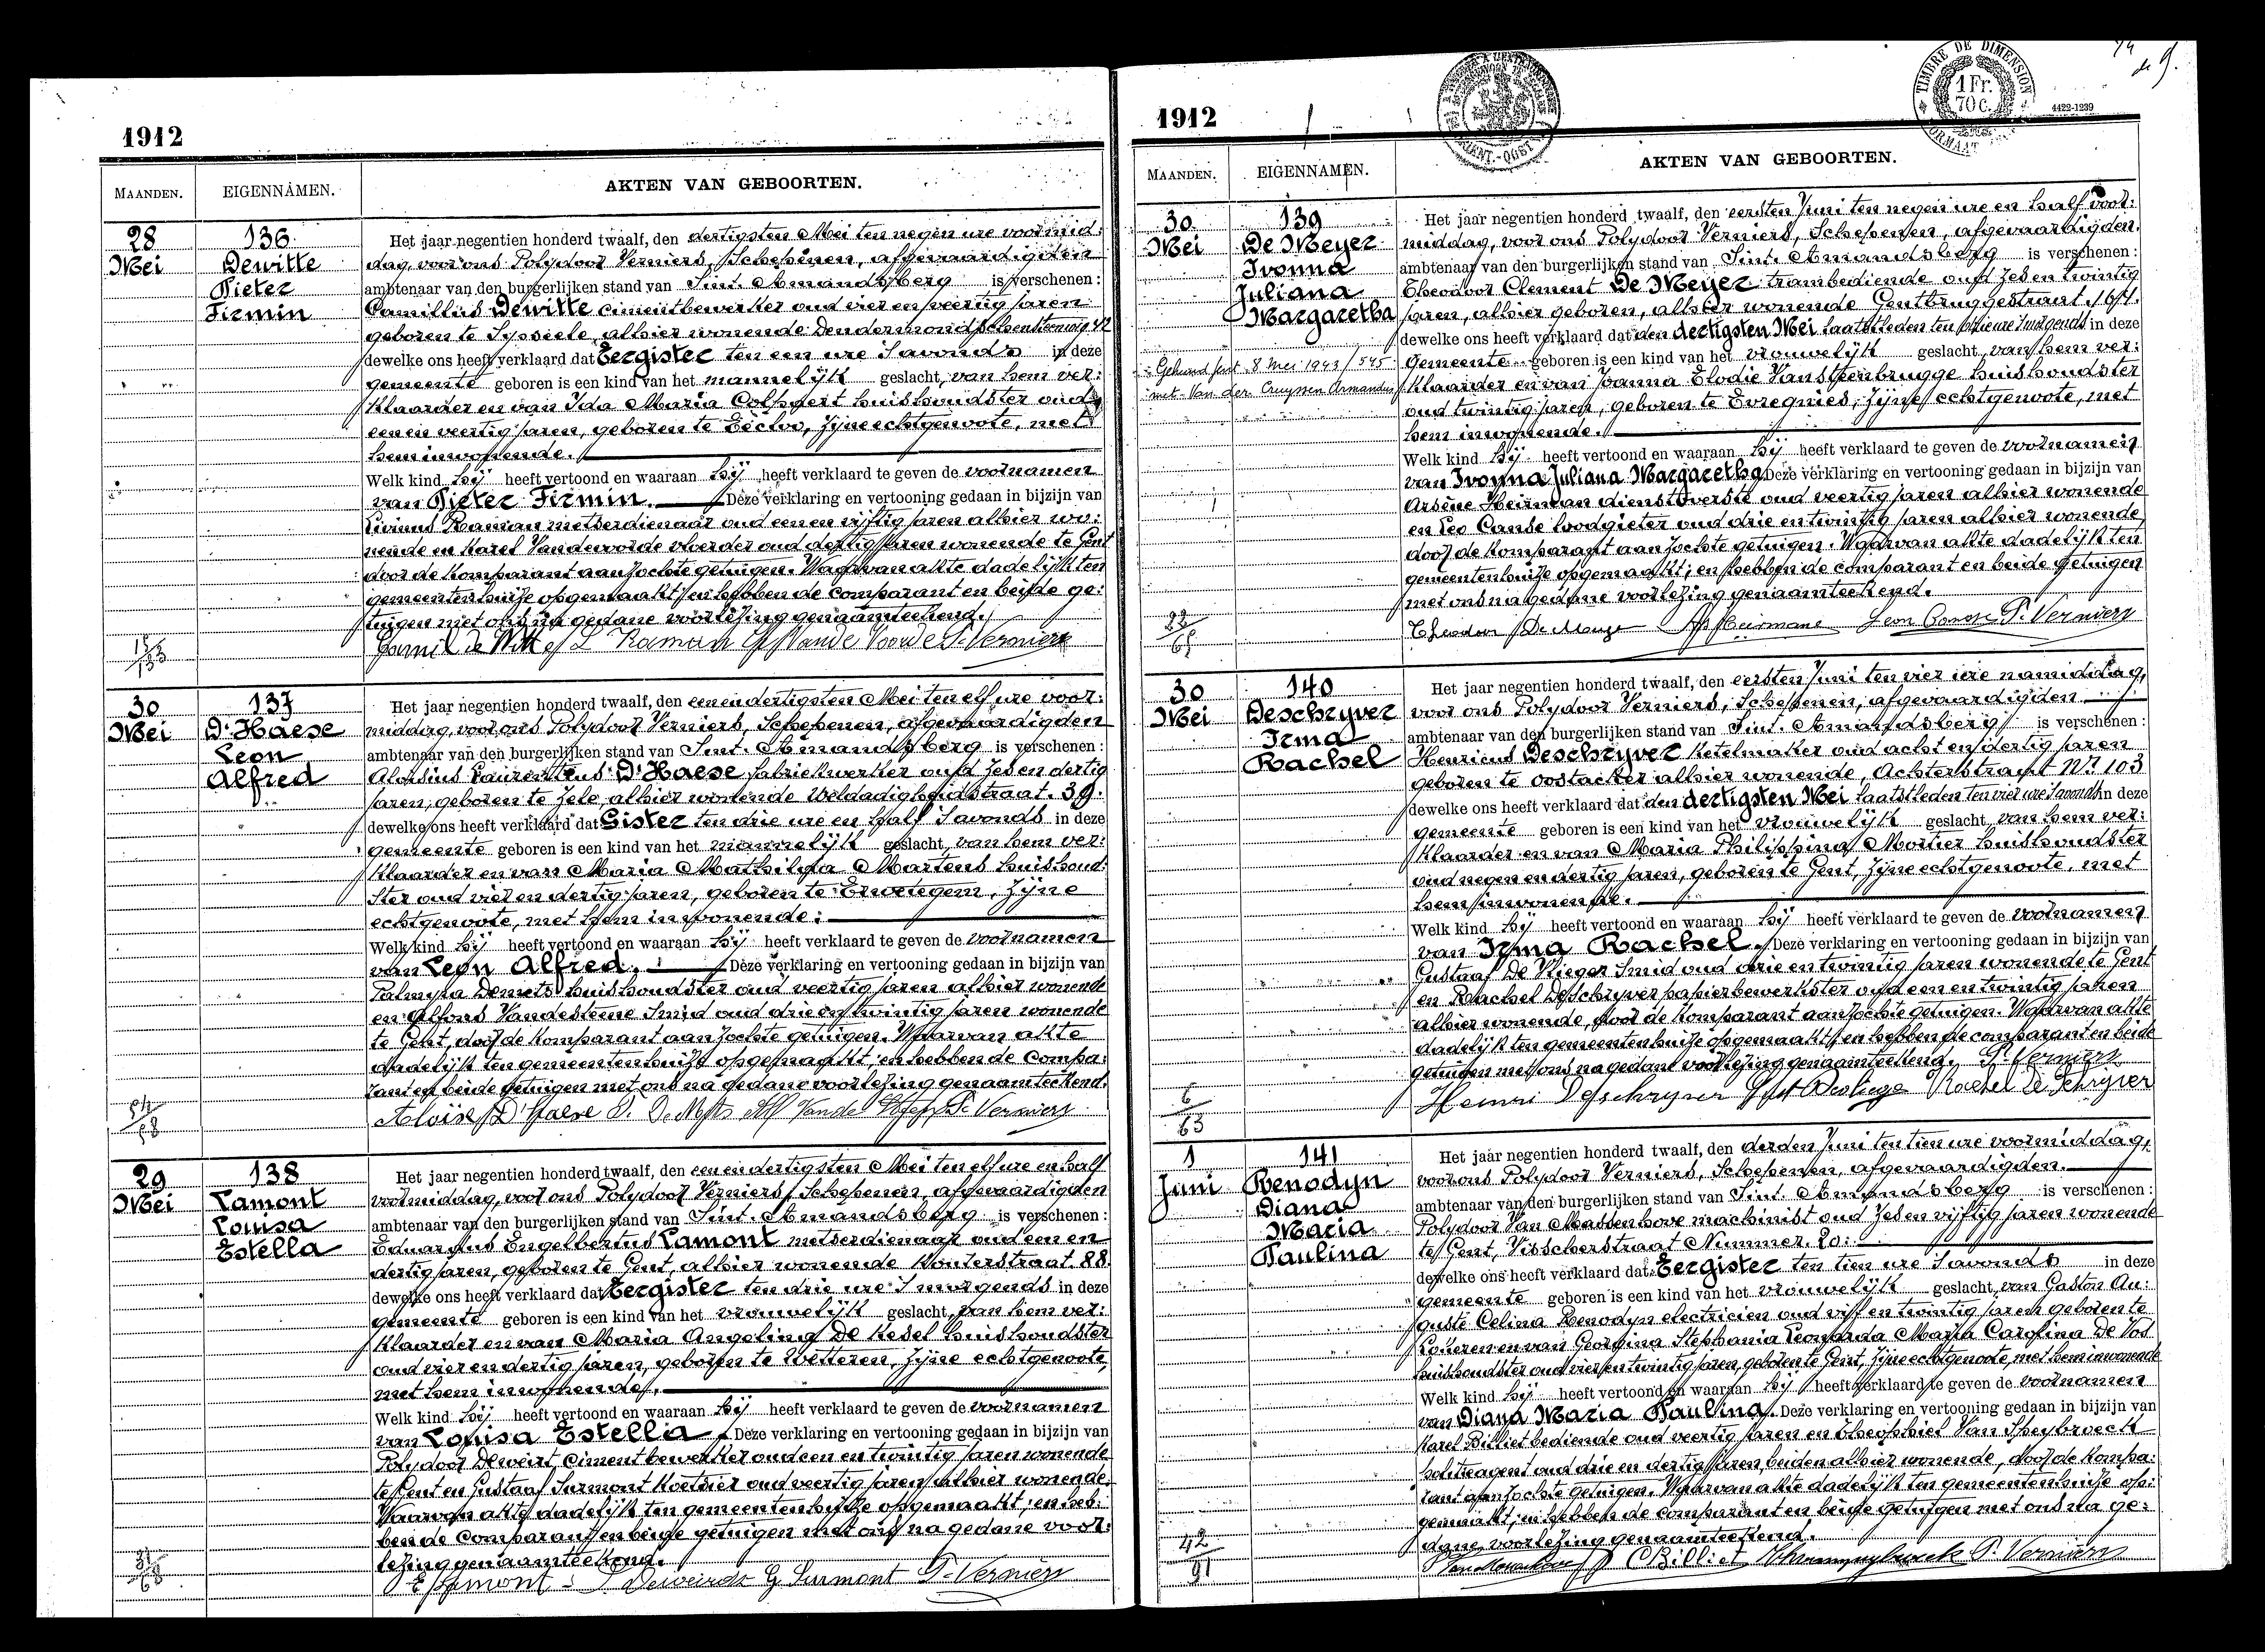 1912
MAANDEN.
EIGENNAMEN.
AKTEN VAN GEBOORTEN.
28
Mei
136
Dewitte
Pieter
Firmin
Het jaar negentien honderd twaalf, den dertigsten Mei ten negen ure voormid:
dag, voor ons Polydoor Verniers, Schepenen, afgevaardigden
ambtenaar van den burgerlijken stand van Sint. Amandsberg is verschenen:
Camillus Dewitte cimentbewerker oud vier en veertig jaren
geboren te Sysseele, alhier wonende Dendermondschensteenweg 42
dewelke ons heeft verklaard dat Eergister ten een ure 's avonds in deze
gemeente geboren is een kind van het mannelijk geslacht, van hem ver:
klaarder en van Ida Maria Colpaert huishoudster oud
een en veertig jaren, geboren te Eecloo, zijne echtgenoote, met
hem inwonende.
Welk kind hij heeft vertoond en waaraan hij heeft verklaard te geven de voornamen
van Pieter Firmin. Deze verklaring en vertooning gedaan in bijzijn van
Livinus Raman metserdienaar oud een en vijftig jaren alhier wo:
nende en Karel Vandevoorde vloerder oud dertig jaren wonende te Gent
door de komparant aanzochte getuigen. Waarvan akte dadelijk ten
gemeentenhuize opgemaakt; en hebben de comparant en beide ge:
tuigen met ons na gedane voorlezing genaamteekend.
Camil de Witte L Raman Vande Voorde P. Verniers
30
Mei
137
D'Haese
Leon
Alfred
Het jaar negentien honderd twaalf, den een en dertigsten Mei ten elf ure voor:
middag, voor ons Polydoor Verniers, Schepenen, afgevaardigden
ambtenaar van den burgerlijken stand van Sint. Amandsberg is verschenen:
Aloisius Laurentius D'Haese fabriekwerker oud zes en dertig
jaren, geboren te Zele, alhier wonende Weldadigheidstraat. 39.
dewelke ons heeft verklaard dat Gister ten drie ure en half 's avonds in deze
gemeente geboren is een kind van het mannelijk geslacht, van hem ver:
klaarder en van Maria Mathilda Martens huishoud:
ster oud vier en dertig jaren, geboren te Erwetegem, zijne
echtgenoote, met hem inwonende:
Welk kind hij heeft vertoond en waaraan hij heeft verklaard te geven de voornamen
van Leon Alfred. Deze verklaring en vertooning gedaan in bijzijn van
Palmyra Demets huishoudster oud veertig jaren alhier wonende
en Alfons Vandesteene Smid oud drie en twintig jaren wonende
te Gent, door de komparant aanzochte getuigen. Waarvan akte
dadelijk ten gemeentenhuize opgemaakt; en hebben de compa:
rant en beide getuigen met ons na gedane voorlezing genaamteekend.
Aloïse D'Haese P. Verniers
29
Mei
138
Lamont
Louisa
Estella
Het jaar negentien honderd twaalf, den een en dertigsten Mei ten elf ure en half
voormiddag, voor ons Polydoor Verniers, Schepenen, afgevaardigden
ambtenaar van den burgerlijken stand van Sint. Amandsberg is verschenen:
Eduardus Engelbertus Lamont metserdienaar oud een en
dertig jaren, geboren te Gent, alhier wonende Wouterstraat 88
dewelke ons heeft verklaard dat Eergister ten drie ure 's morgends in deze
gemeente geboren is een kind van het vrouwelijk geslacht, van hem ver:
klaarder en van Maria Angelina De Kesel huishoudster
oud vier en dertig jaren, geboren te Wetteren, zijne echtgenoote,
met hem inwonende.
Welk kind hij heeft vertoond en waaraan hij heeft verklaard te geven de voornamen
van Louisa Estella Deze verklaring en vertooning gedaan in bijzijn van
Polydoor Deweirt, cimentbewerker oud een en twintig jaren wonende
te Gent en Gustaaf Surmont Koetsier oud veertig jaren alhier wonende.
Waarvan akte dadelijk ten gemeentenhuize opgemaakt; en heb:
ben de comparant en beide getuigen met ons na gedane voor:
lezing genaamteekend.
E Lamont P Deweirdt G Surmont P. Verniers
1912
TIMBRE DE DIMENSION
1 Fr.
70 c.
4422-1239
MAANDEN.
EIGENNAMEN.
AKTEN VAN GEBOORTEN.
30
Mei
139
De Meyer
Ivonna
Juliana
Margaretha
Gehuwd Gent 8 Mei 1943 / 545
met Van der Cruyssen Armandus
Het jaar negentien honderd twaalf, den eersten Juni ten negen ure en half voor:
middag, voor ons Polydoor Verniers, Schepenen, afgevaardigden.
ambtenaar van den burgerlijken stand van Sint. Amandsberg is verschenen:
Theodoor Clement De Meyer trambediende oud zes en twintig
jaren, alhier geboren, alhier wonende Gentbruggestraat. 164.
dewelke ons heeft verklaard dat den dertigsten Mei laatstleden ten drie ure 's morgends in deze
Gemeente geboren is een kind van het vrouwelijk geslacht, van hem ver:
klaarder en van Joanna Elodie Vansteenbrugge huishoudster
oud twintig jaren, geboren te Evregnies, zijne echtgenoote, met
hem inwonende.
Welk kind hij heeft vertoond en waaraan hij heeft verklaard te geven de voornamen
van Ivonna Juliana Margaretha Deze verklaring en vertooning gedaan in bijzijn van
Arsène Heirman dienstoverste oud veertig jaren alhier wonende
en Leo Canse loodgieter oud drie en twintig jaren alhier wonende
door de komparant aanzochte getuigen. Waarvan akte dadelijk ten
gemeentenhuize opgemaakt; en hebben de comparant en beide getuigen
met ons na gedane voorlezing genaamteekend.
Theodoor De Meyer Heirman Leon Canse P. Verniers
30
Mei
140
Deschryver
Irma
Rachel
Het jaar negentien honderd twaalf, den eersten Juni ten vier ure namiddag,
voor ons Polydoor Verniers, Schepenen, afgevaardigden
ambtenaar van den burgerlijken stand van Sint. Amandsberg is verschenen:
Henricus Deschryver Ketelmaker oud acht en dertig jaren
geboren te Oostacker alhier wonende, Achterstraat Nr. 103
dewelke ons heeft verklaard dat den dertigsten Mei laatstleden ten vier ure 's avonds in deze
gemeente geboren is een kind van het vrouwelijk geslacht, van hem ver:
klaarder en van Maria Philippina Mortier huishoudster
oud negen en dertig jaren, geboren te Gent, zijne echtgenoote, met
hem inwonende.
Welk kind hij heeft vertoond en waaraan hij heeft verklaard te geven de voornamen
van Irma Rachel. Deze verklaring en vertooning gedaan in bijzijn van
Gustaaf De Vlieger Smid oud drie en twintig jaren wonende te Gent
en Rachel Deschryver papierbewerkster oud een en twintig jaren
alhier wonende, door de komparant aanzochte getuigen. Waarvan akte
dadelijk ten gemeentenhuize opgemaakt; en hebben de comparant en beide
getuigen met ons na gedane voorlezing genaamteekend. P. Verniers
Henri Deschryver Rachel De Schryver
1
Juni
141
Benodyn
Diana
Maria
Paulina
Het jaar negentien honderd twaalf, den derden Juni ten tien ure voormiddag,
voor ons Polydoor Verniers, Schepenen, afgevaardigden.
ambtenaar van den burgerlijken stand van Sint. Amandsberg is verschenen:
Polydoor Van Massenhove machinist oud zes en vijftig jaren wonende
te Gent, Visscherstraat Nummer. 20:
dewelke ons heeft verklaard dat Eergister ten tien ure 's avonds in deze
gemeente geboren is een kind van het vrouwelijk geslacht, van Gaston Au:
guste Celina Benodyn electricien oud vijf en twintig jaren geboren te
Loveren en van Georgina Stephania Leonarda Maria Carolina De Vos
huishoudster oud vier en twintig jaren, geboren te Gent, zijne echtgenoote, met hem inwonende
Welk kind hij heeft vertoond en waaraan hij heeft verklaard te geven de voornamen
van Diana Maria Paulina. Deze verklaring en vertooning gedaan in bijzijn van
Karel Billiet bediende oud veertig jaren en Theophiel Van Speybroeck
politieagent oud drie en dertig jaren, beiden alhier wonende, door de kompa:
rant aanzochte getuigen. Waarvan akte dadelijk ten gemeentenhuize op:
gemaakt; en hebben de comparant en beide getuigen met ons na ge:
dane voorlezing genaamteekend.
Van Massenhove C Billiet P. Verniers